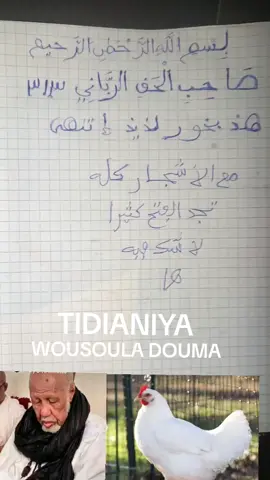 بسم الله الرحمن الرحيم
صاحب الحق الرباني ٣١٣
هذ بخور لذيذ إنتهى
مع الأشجار كله
تجد الفتح كثيرا
لا شك فيه
TIDIANIYA
WOUSOULA DOUMA